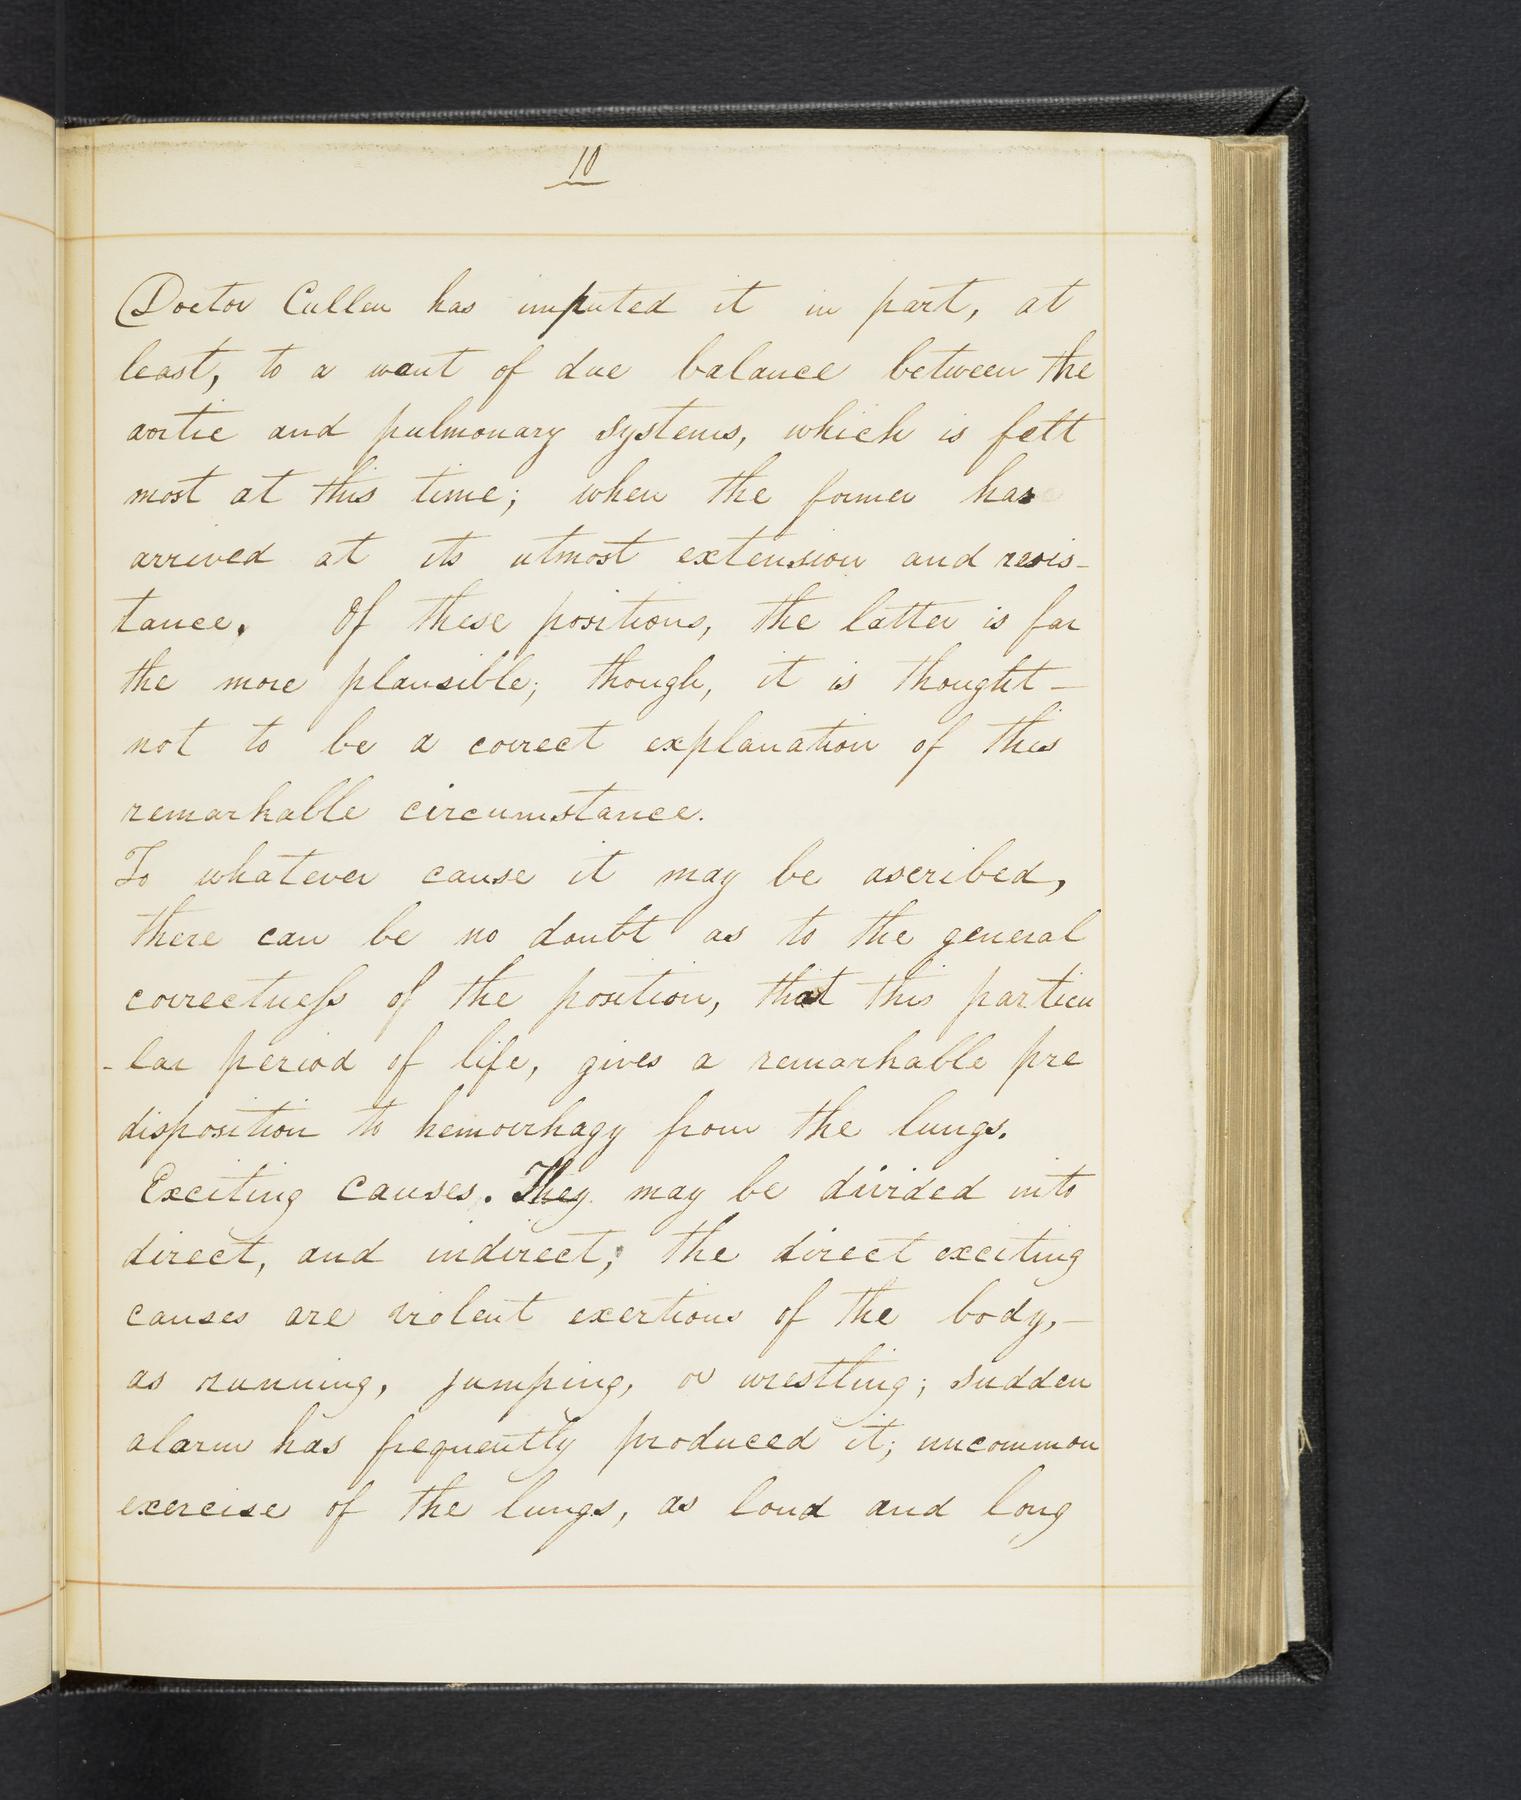 10
Doctor Cullen has imputed it in part, at
least, to a want of due balance between the
aortic and pulmonary systems, which is felt
most at this time; when the former has
arrived at its utmost extension and resis-
tance. Of these positions, the latter is far
the more plausible; though, it is thought-
not to be a correct explanation of this
remarkable circumstance.
To whatever cause it may be ascribed,
there can be no doubt as to the general
correctneſs of the position, that this particu
-lar period of life, gives a remarkable pre
disposition to hemorrhagy from the lungs.
Exciting causes. They may be divided into
direct, and indirect; the direct exciting
causes are violent exertions of the body,-
as running, jumping, or wrestling; sudden
alarm has frequently produced it; uncommon
exercise of the lungs, as loud and long